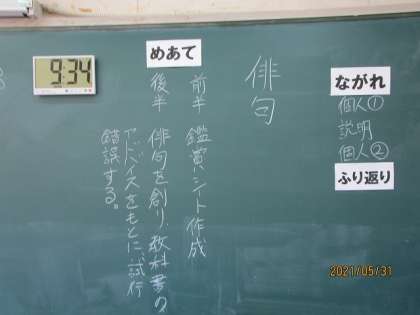 ながれ
個人①
説明
個人②
ふり返り
俳句
めあて
前半 鑑賞シート作成
後半 俳句を創り、教科書の
アドバイスをもとに、試行
錯誤する。
9:34
2021/05/31